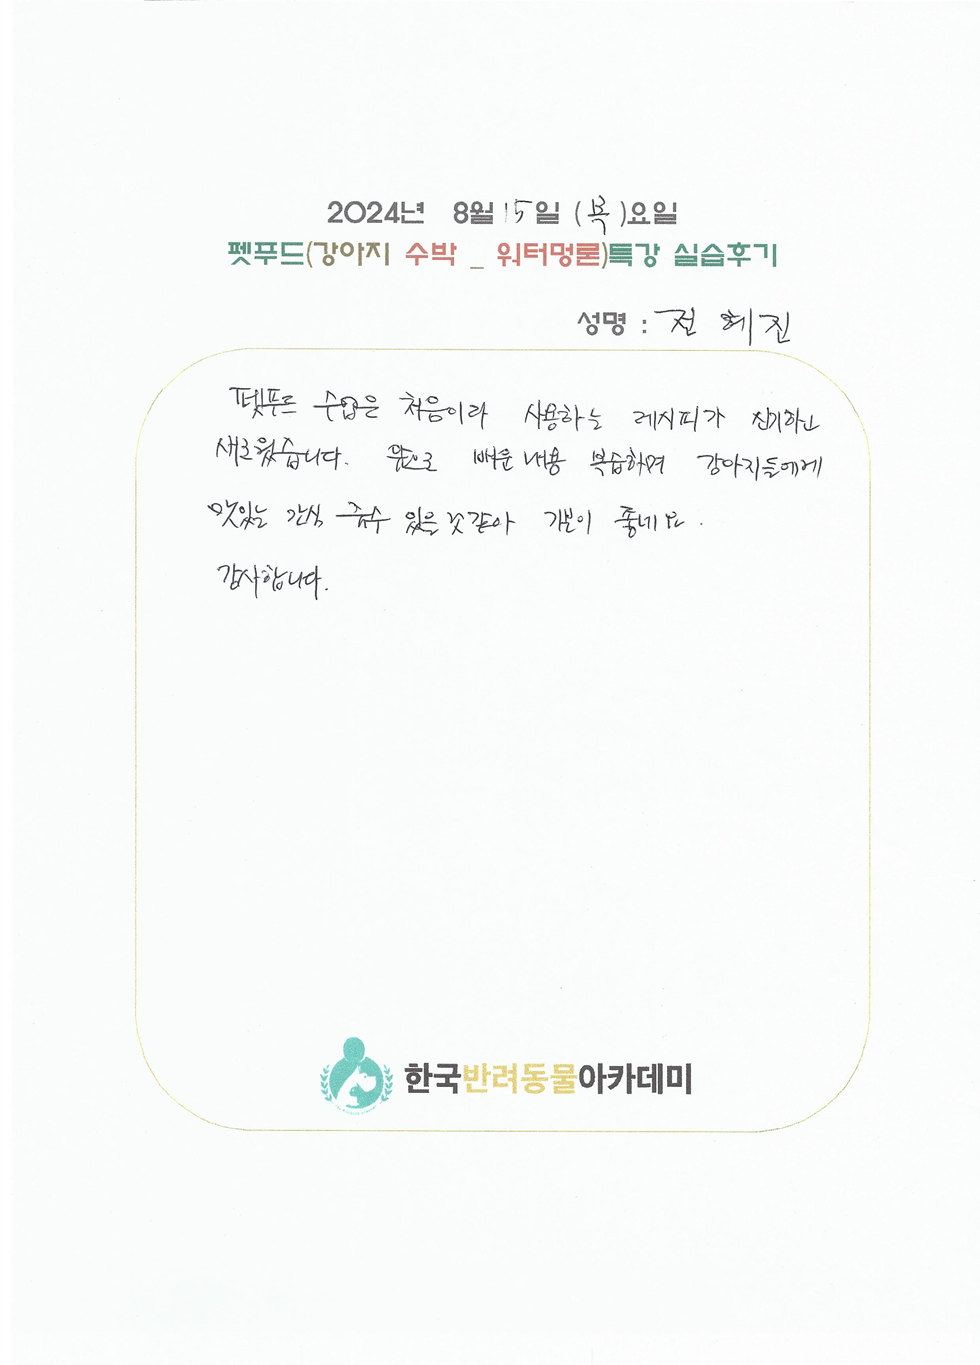 2024년 8월 15일 (목)요일
펫푸드(강아지 수박 _ 워터멍론)특강 실습후기
성명 : 전혜진
펫푸드 수업은 처음이라 사용하는 레시피가 신기하고
새로웠습니다. 앞으로 배운 내용 복습하며 강아지들에게
맛있는 간식 줄수 있을것같아 기분이 좋네요.
감사합니다.
한국반려동물아카데미